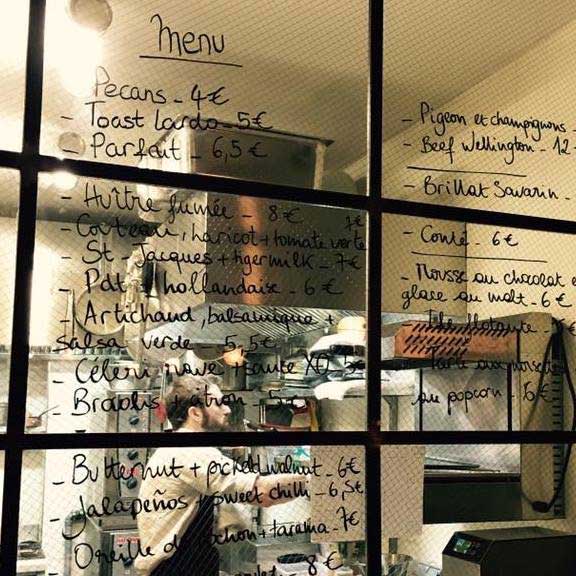 Menu
Pecans - 4€
- Toast Lardo - 5€
- Parfait - 6,5€
- Huître fumée - 8€
- Couteau, haricot + tomate verte 7€
- St-Jacques + tigermilk - 7€
- Pdt + hollandaise - 6€
- Artichaud, balsamique +
salsa verde - 5,5€
- Céleri rave + sauce XO 5€
- Brocolis + citron - 5€
- Butternut + pickled walnut - 6€
- Jalapeños + sweet chilli - 6,5€
- Oreille de cochon + tarama - 7€
8€
- Pigeon et champignons -
- Beef Wellington - 12
- Brillat Savarin -
- Comté - 6€
- Mousse au chocolat
glace au malt - 6€
- Île flottante -
- Tarte au
au popcorn - 6€